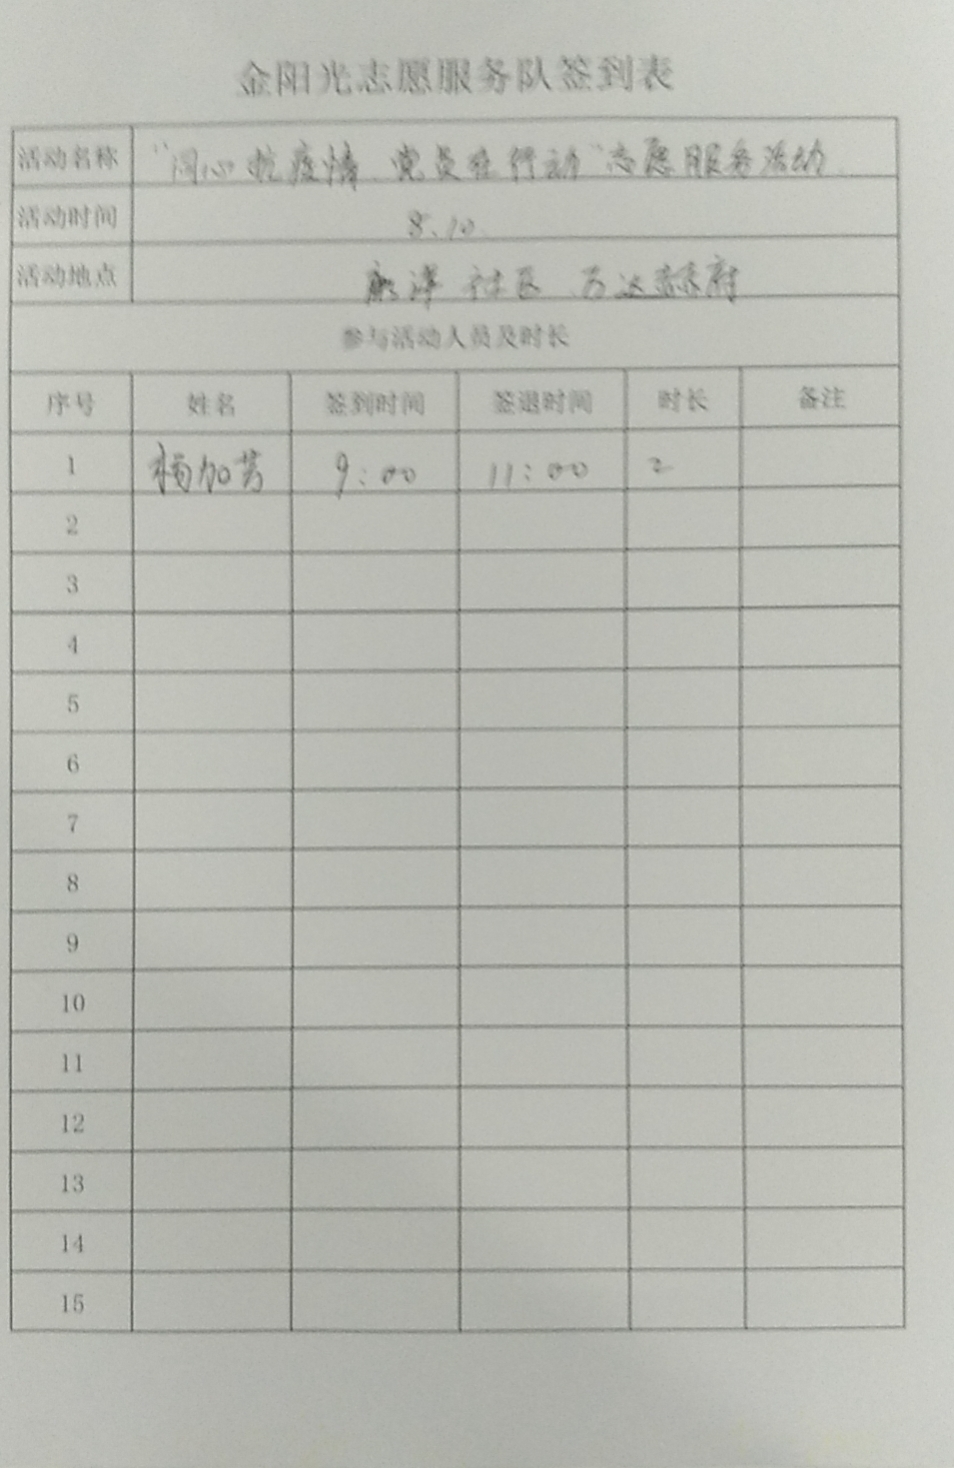 金阳光志愿服务队签到表
活动名称 "同心抗疫情 党员在行动"志愿服务活动
活动时间 8.10
活动地点 社区 万达赫府
参与活动人员及时长
序号 姓名 签到时间 签退时间 时长 备注
1 杨加芳 9:00 11:00 2
2
3
4
5
6
7
8
9
10
11
12
13
14
15